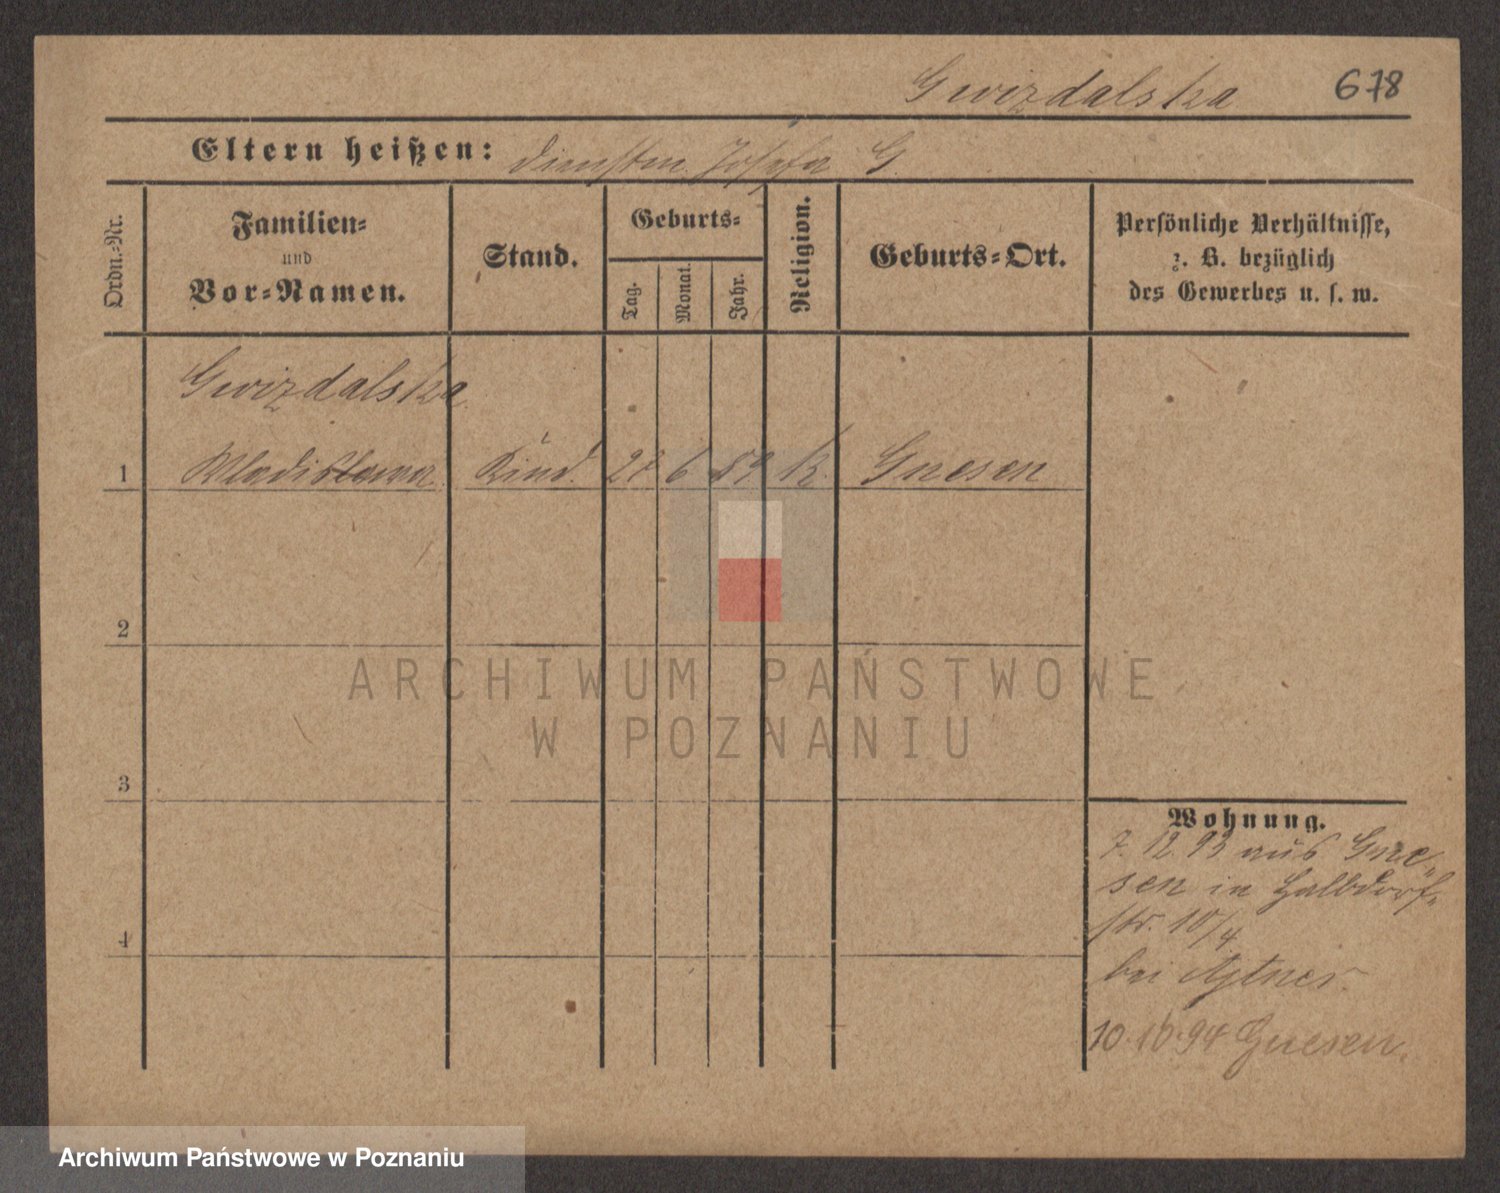 Gwizdalska 678
Eltern heißen: Dienstm. Josefa G.
Ordn.-Nr.
Familien-
und
Vor-Namen.
Stand.
Geburts-
Tag.
Monat.
Jahr.
Religion.
Geburts-Ort.
Persönliche Verhältnisse,
z. B. bezüglich
des Gewerbes u. s. w.
Gwizdalska
1 Wladislawa Kind. 6 89 k. Gnesen
2
3
4
Wohnung.
7. 12. 93 aus Gne-
sen in Halbdorf-
str. 10/4
bei
10. 10. 94 Gnesen.
ARCHIWUM PAŃSTWOWE
W POZNANIU
Archiwum Państwowe w Poznaniu